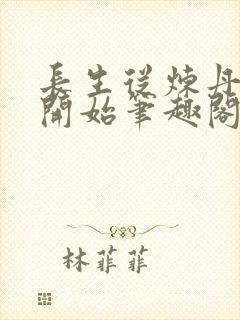 長生從煉丹
開始筆趣閣
林菲菲